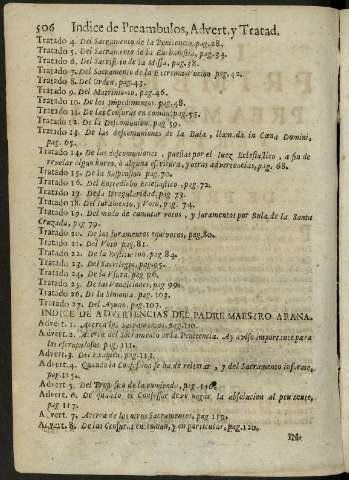 506 Indice de Preambulos, Advert. y Tratad.
Tratado 4. Del Sacramento de la Penitencia, pag. 28.
Tratado 5. Del Sacramento de la Eucharistia, pag. 34.
Tratado 6. Del Sacrificio de la Missa, pag. 38.
Tratado 7. Del Sacramento de la Extremauncion, pag. 42.
Tratado 8. Del Orden, pag. 43.
Tratado 9. Del Matrimonio, pag. 46.
Tratado 10. De los Impedimentos, pag. 48.
Tratado 11. De las Censuras en comun, pag. 55.
Tratado 12. De la Descomunion, pag. 59.
Tratado 13. De las descomuniones de la Bula, llamada in Cæna Domini,
pag. 65.
Tratado 14. De las descomuniones, puestas por el Juez Eclesiastico, a fin de
revelar algun hurto, ò alguna escritura, y otras advertencias, pag. 68.
Tratado 15. De la Suspension, pag. 70.
Tratado 16. Del Entredicho Eclesiastico, pag. 72.
Tratado 17. De la Irregularidad, pag. 73.
Tratado 18. Del Juramento, y Voto, pag. 74.
Tratado 19. Del modo de comutar votos, y juramentos por Bula de la Santa
Cruzada, pag. 79.
Tratado 20. De los juramentos equivocos, pag. 80.
Tratado 21. Del Voto, pag. 81.
Tratado 22. De la Restitucion, pag. 84.
Tratado 23. Del Sacrilegio, pag. 95.
Tratado 24. De la Usura, pag. 96.
Tratado 25. De las pag. 99.
Tratado 26. De la Simonia, pag. 103.
Tratado 27. Del Ayuno, pag. 107.
INDICE DE ADVERTENCIAS DEL PADRE MAESTRO ARANA.
Advert. 1. Acerca los Sacramentos, pag. 110.
Advert. 2. Acerca del Sacramento de la Penitencia. Ay aviso importante para
los escrupulosos, pag. 111.
Advert. 3. Del Examen, pag. 113.
Advert. 4. Quando la Confession se ha de reiterar, y del Sacramento informe,
pag. 115.
Advert. 5. Del Proposito de la enmienda, pag. 116.
Advert. 6. De quando el Confessor deve negar la absolucion al penitente,
pag. 117.
Advert. 7. Acerca de los otros Sacramentos, pag. 119.
Advert. 8. De las Censuras en comun, y en particular, pag. 120.
IN-